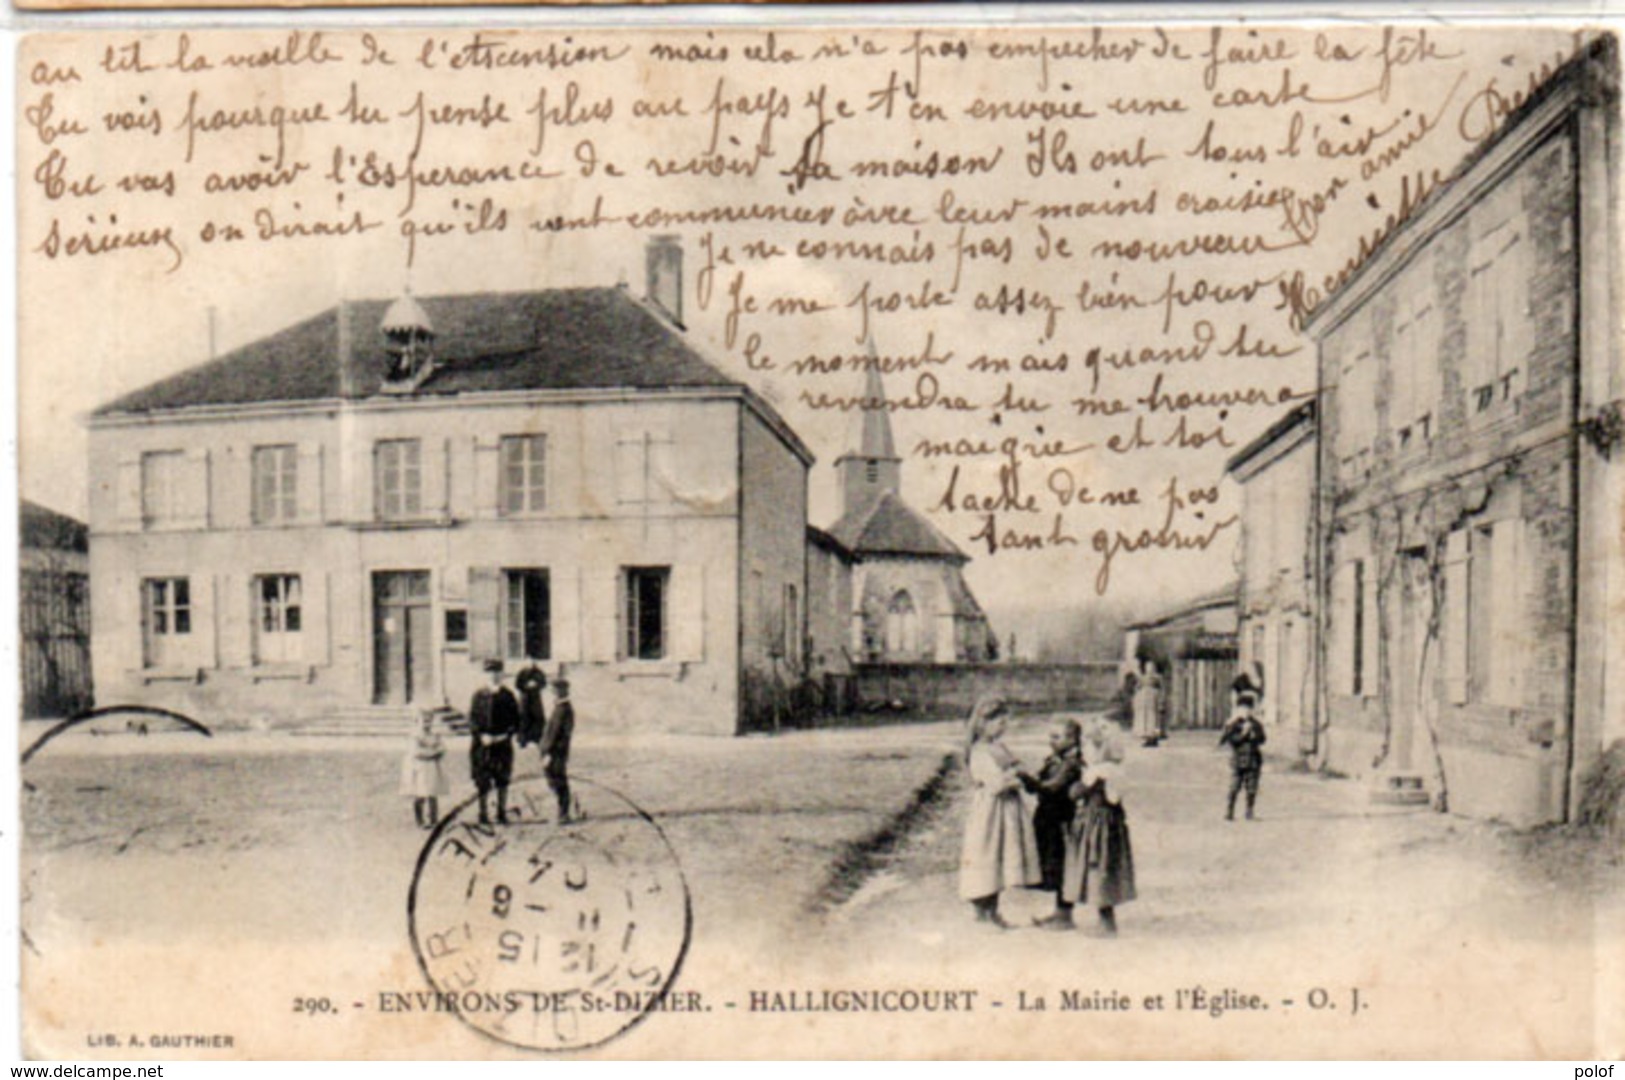 au lit la veille de l'Ascension mais cela n'a pas empecher de faire la fête
Tu vois pourque tu pense plus au pays Je t'en envoie une carte
Tu vas avoir l'Esperance de revoir ta maison Ils ont tous l'air
Serieux on dirait qu'ils vont communier avec leur mains croisie
Je ne connais pas de nouveau
Je me porte assez bien pour
le moment mais quand tu
reviendra tu me trouvera
maigrie et toi
tache de ne pas
tant grossir
Ton amie
Henriette
290. - ENVIRONS DE St-DIZIER. - HALLIGNICOURT - La Mairie et l'Église. - O. J.
LIB. A. GAUTHIER
delcampe.net
polof